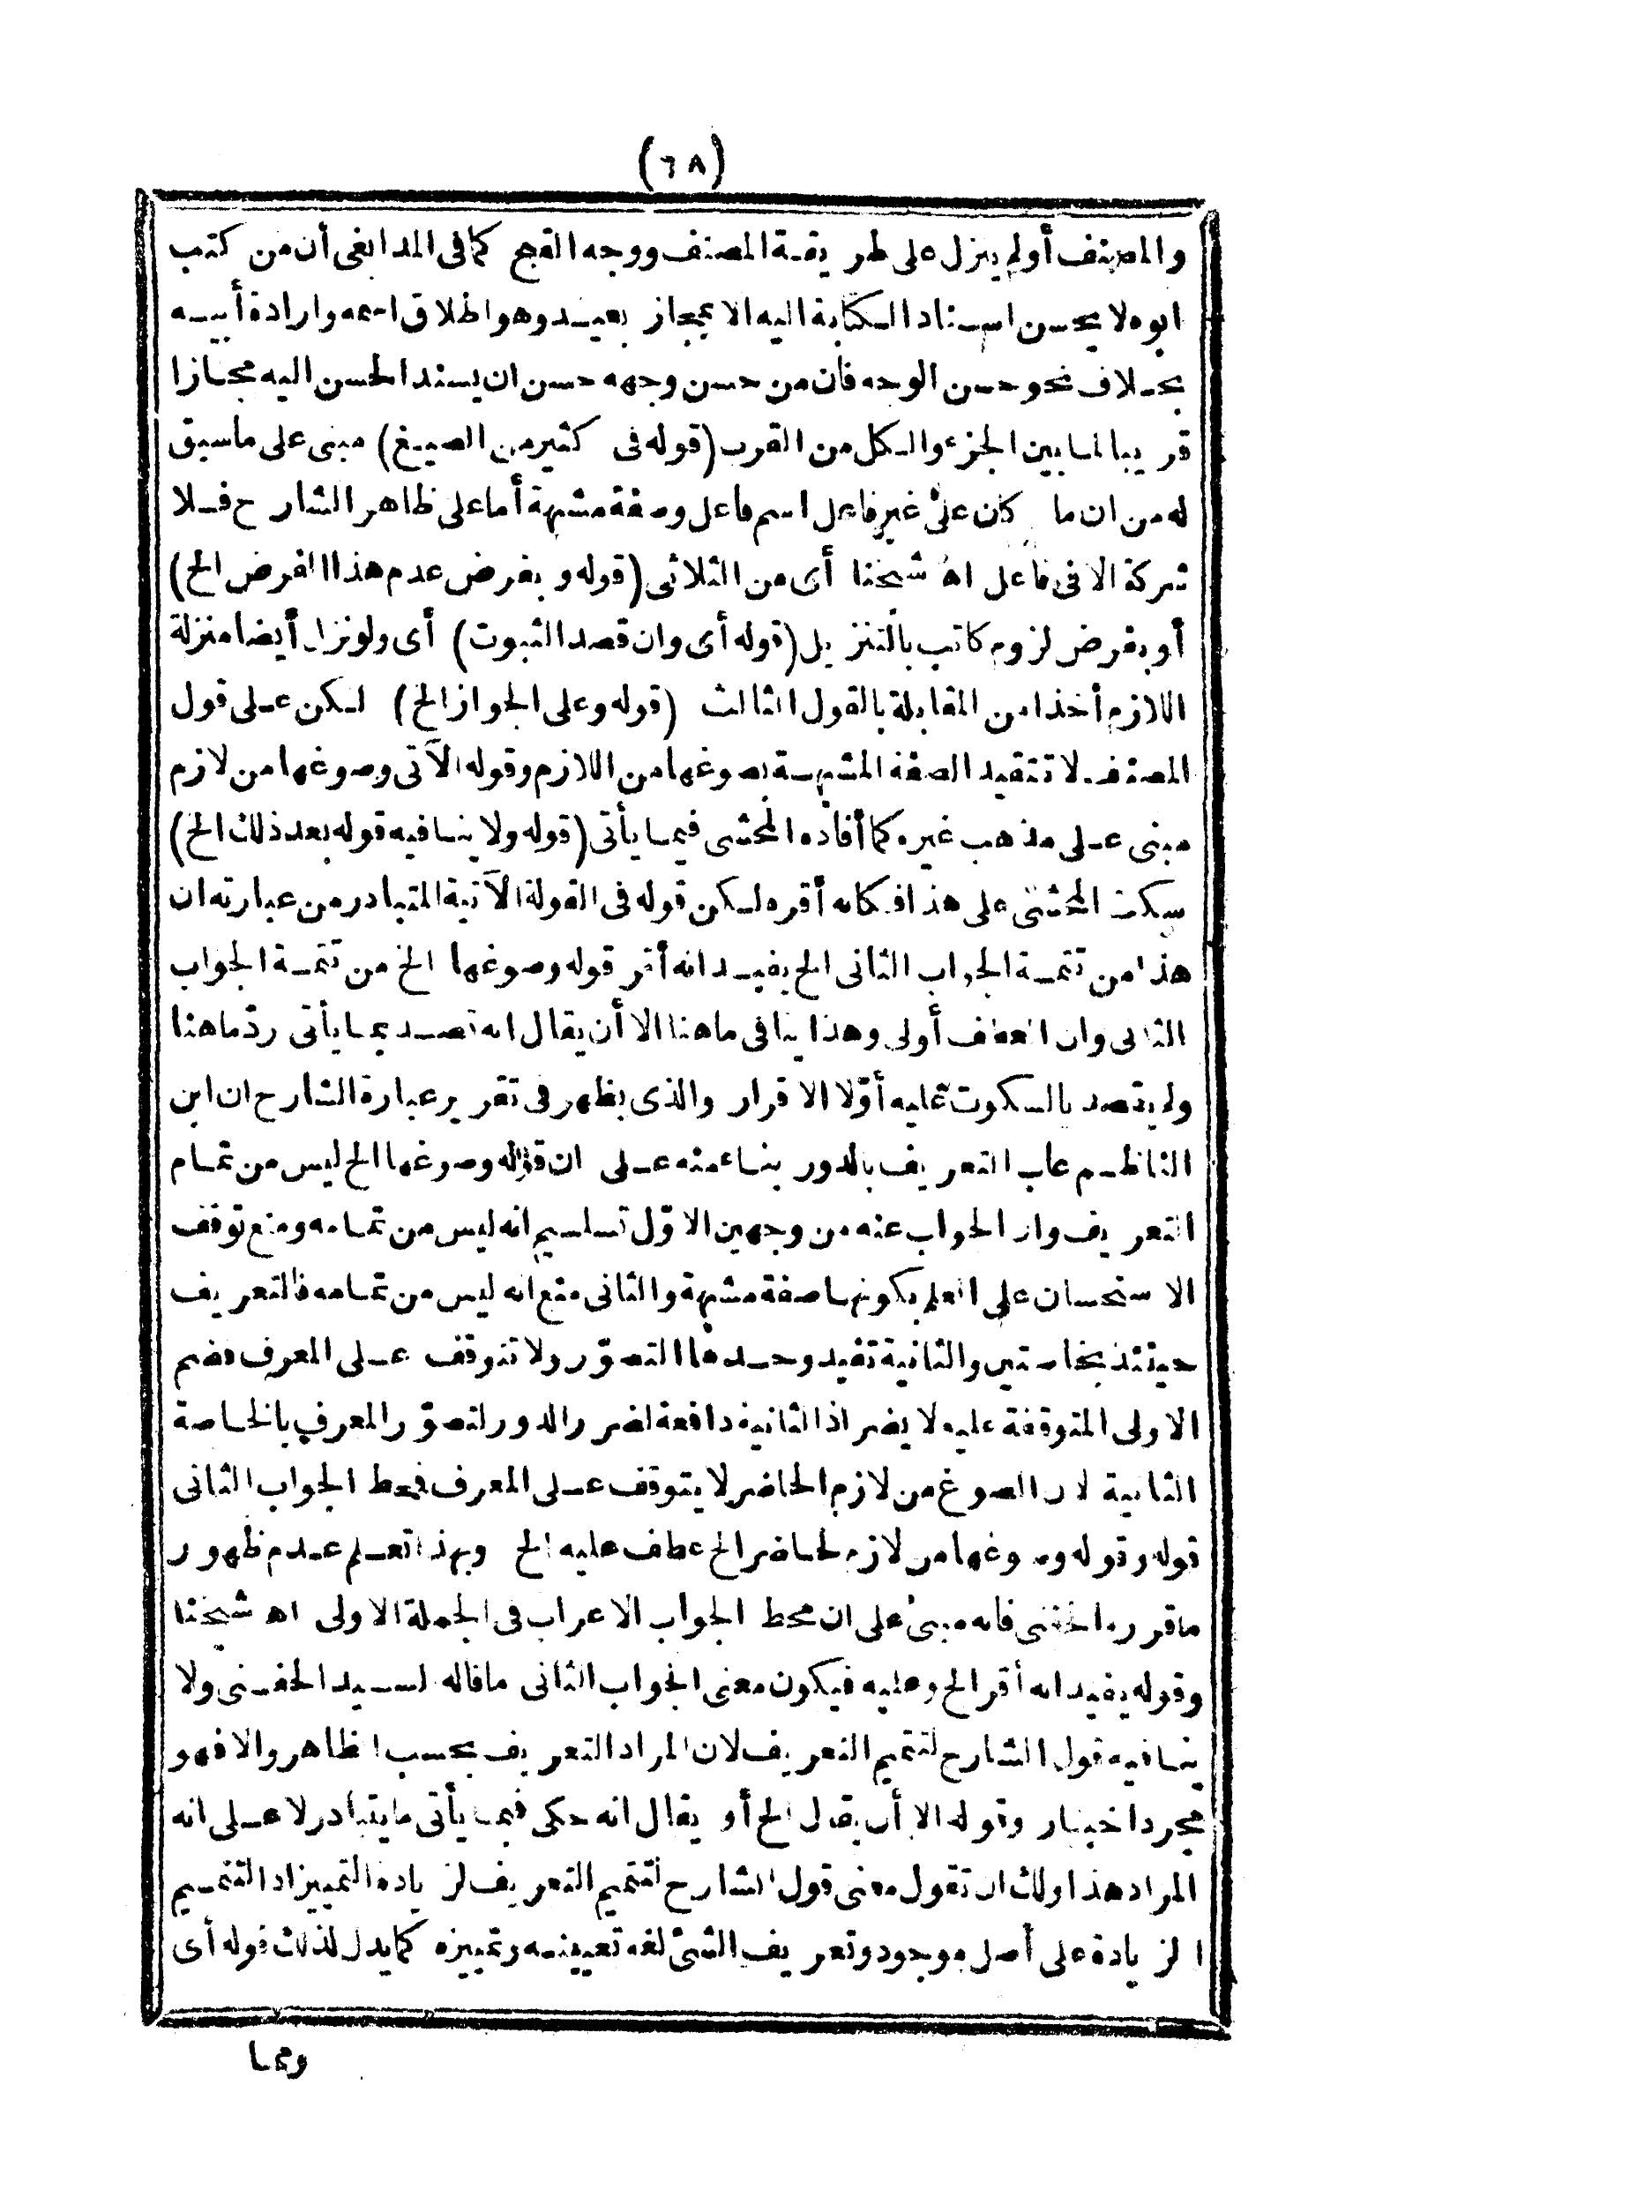 (٦٨)
والمصنف أولم ينزل على طريقة المصنف ووجه القبح كما فى المدابغى أن من كتب
ابوه لا يحسن اسناد الكتابة اليه الا بمجاز بعيد وهو اطلاق اسمه وارادة أبيه
بخلاف نحو حسن الوجه فان من حسن وجهه حسن ان يسند الحسن اليه مجازا
قريبا لما بين الجزء والكل من القرب (قوله فى كثير من الصيغ) مبنى على ماسبق
له من ان ما كان على غير فاعل اسم فاعل وصفة مشبهة أما على ظاهر الشارح فلا
شركة الا فى فاعل اه شيخنا أى من الثلاثى (قوله وبفرض عدم هذا الفرض الخ)
أو بفرض لزوم كاتب بالتنزيل (قوله أى وان قصد الثبوت) أى ولو نزل أيضا منزلة
اللازم أخذا من المقابلة بالقول الثالث (قوله وعلى الجواز الخ) لكن على قول
المصنف لا تتقيد الصفة المشبهة بصوغها من اللازم وقوله الآتى وصوغها من لازم
مبنى على مذهب غيره كما أفاده المحشى فيما يأتى (قوله ولا ينافيه قوله بعد ذلك الخ)
سكت المحشى على هذا فكانه أقره لكن قوله فى القولة الآتية المتبادر من عبارته ان
هذا من تتمة الجواب الثانى الخ يفيد انه أقر قوله وصوغها الخ من تتمة الجواب
الثانى وان العطف أولى وهذا ينافى ما هنا الا أن يقال انه قصد بما يأتى ردّ ما هنا
ولم يقصد بالسكوت عليه أوّلا الاقرار والذى يظهر فى تقرير عبارة الشارح ان ابن
الناظم عاب التعريف بالدور بناء منه على ان قوله وصوغها الخ ليس من تمام
التعريف وان الجواب عنه من وجهين الاوّل تسليم انه ليس من تمامه ومنع توقف
الاستحسان على العلم بكونها صفة مشبهة والثانى منع انه ليس من تمامه فالتعريف
حينئذ بخاصتين والثانية تفيد وحدها التصوّر ولا تتوقف على المعرف فضم
الاولى المتوقفة عليه لا يضر اذ الثانية دافعة لضرر الدور لتصوّر المعرف بالخاصة
الثانية لان الصوغ من لازم الحاضر لا يتوقف على المعرف فمحط الجواب الثانى
قوله وقوله وصوغها من لازم لحاضر الخ عطف عليه الخ وبهذا تعلم عدم ظهور
ماقرره الحفنى فانه مبنىّ على ان محط الجواب الاعراب فى الجملة الاولى اه شيخنا
وقوله يفيد انه أقر الخ وعليه فيكون معنى الجواب الثانى ماقاله السيد الحفنى ولا
ينافيه قول الشارح لتتميم التعريف لان المراد التعريف بحسب الظاهر والا فهو
مجرد اخبار وقوله الا أن يقال الخ أو يقال انه حكى فيما يأتى ما يتبادر لا على انه
المراد هذا ولك ان تقول معنى قول الشارح لتتميم التعريف لزيادة التمييز اذ التتميم
الزيادة على أصل موجود وتعريف الشئ لغة تعيينه وتمييزه كما يدل لذلك قوله أى
ومما